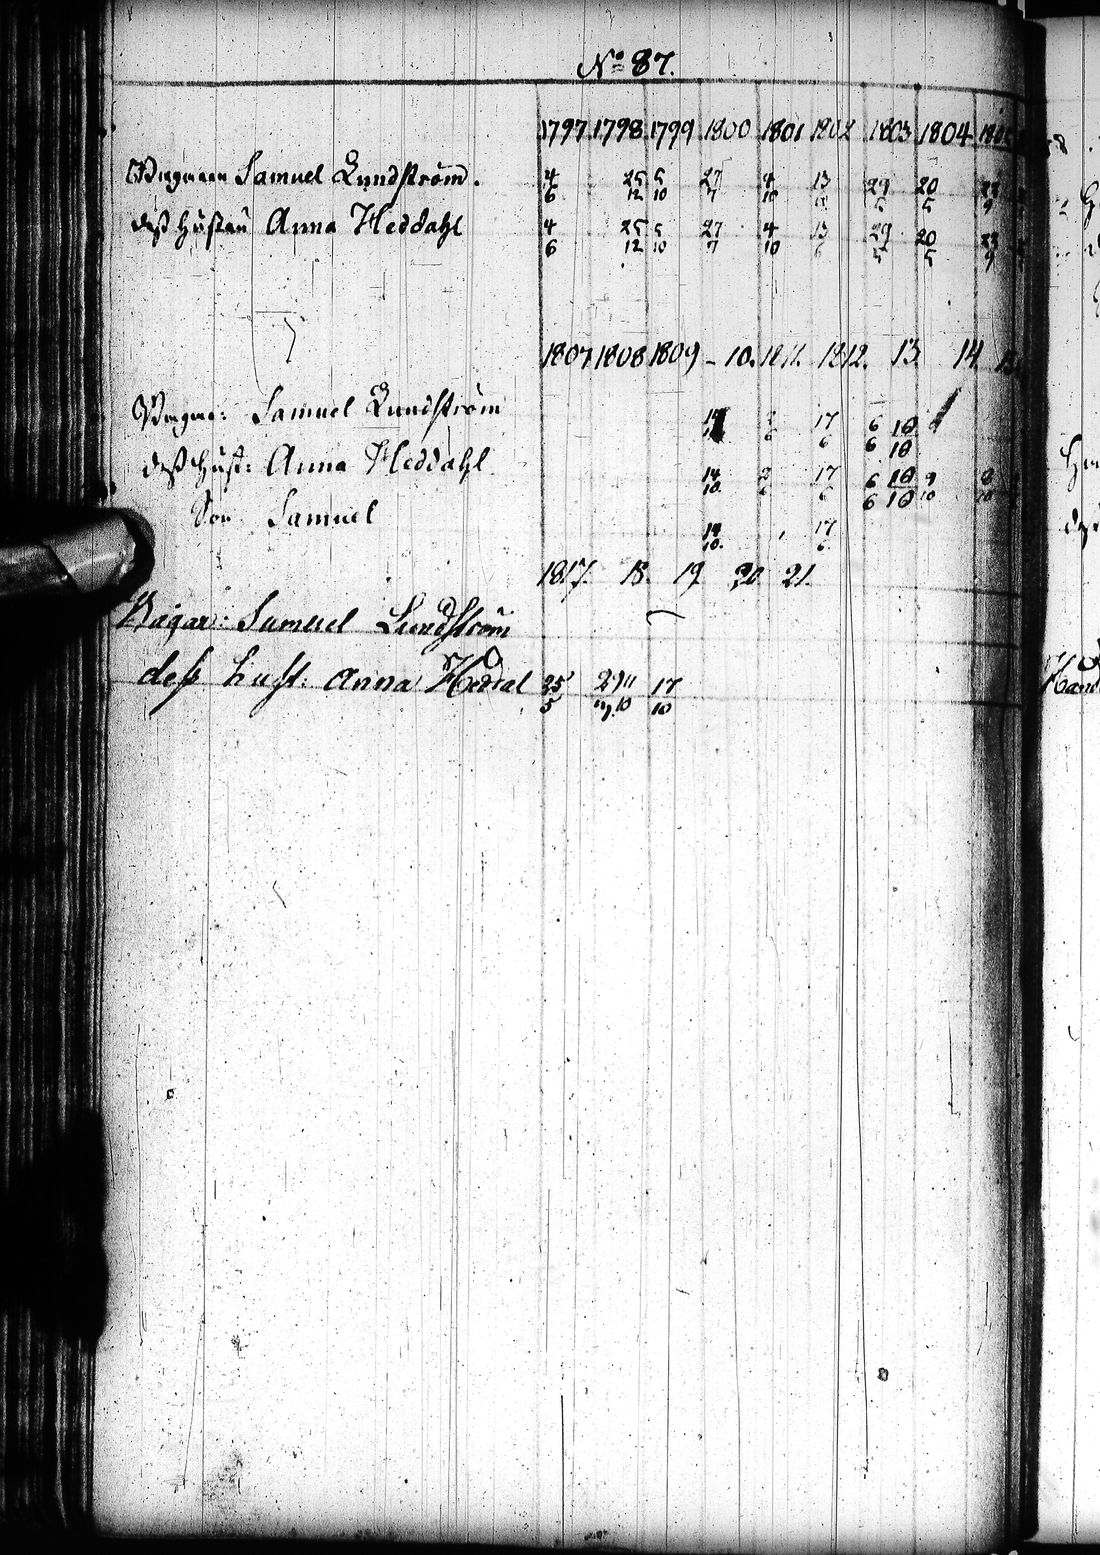 No 87.
1797. 1798 1799 1800 1801 1802 1803 1804 1805
Samuel Lundström. 4/6 25/12 5/10 27/7 4/10 13 29/5 20/5 23/9
deß Hustru Anna Heddahl 4/6 25/12 5/10 27/7 4/10 13/6 29/5 20/5 23/9
1807 1808 1809 - 10. 1811. 1812. 13. 14.
Samuel Lundström 17/6 6/6 10/10
deß Hust: Anna Heddahl 14/10. 2/6 17/6 6/6 10/10 9/10 8/10
Son Samuel 14/10. 17/6
1817. 18. 19 20 21.
Bagar: Samuel Lundström
deß hust: Anna Heddal 25/5 17/10